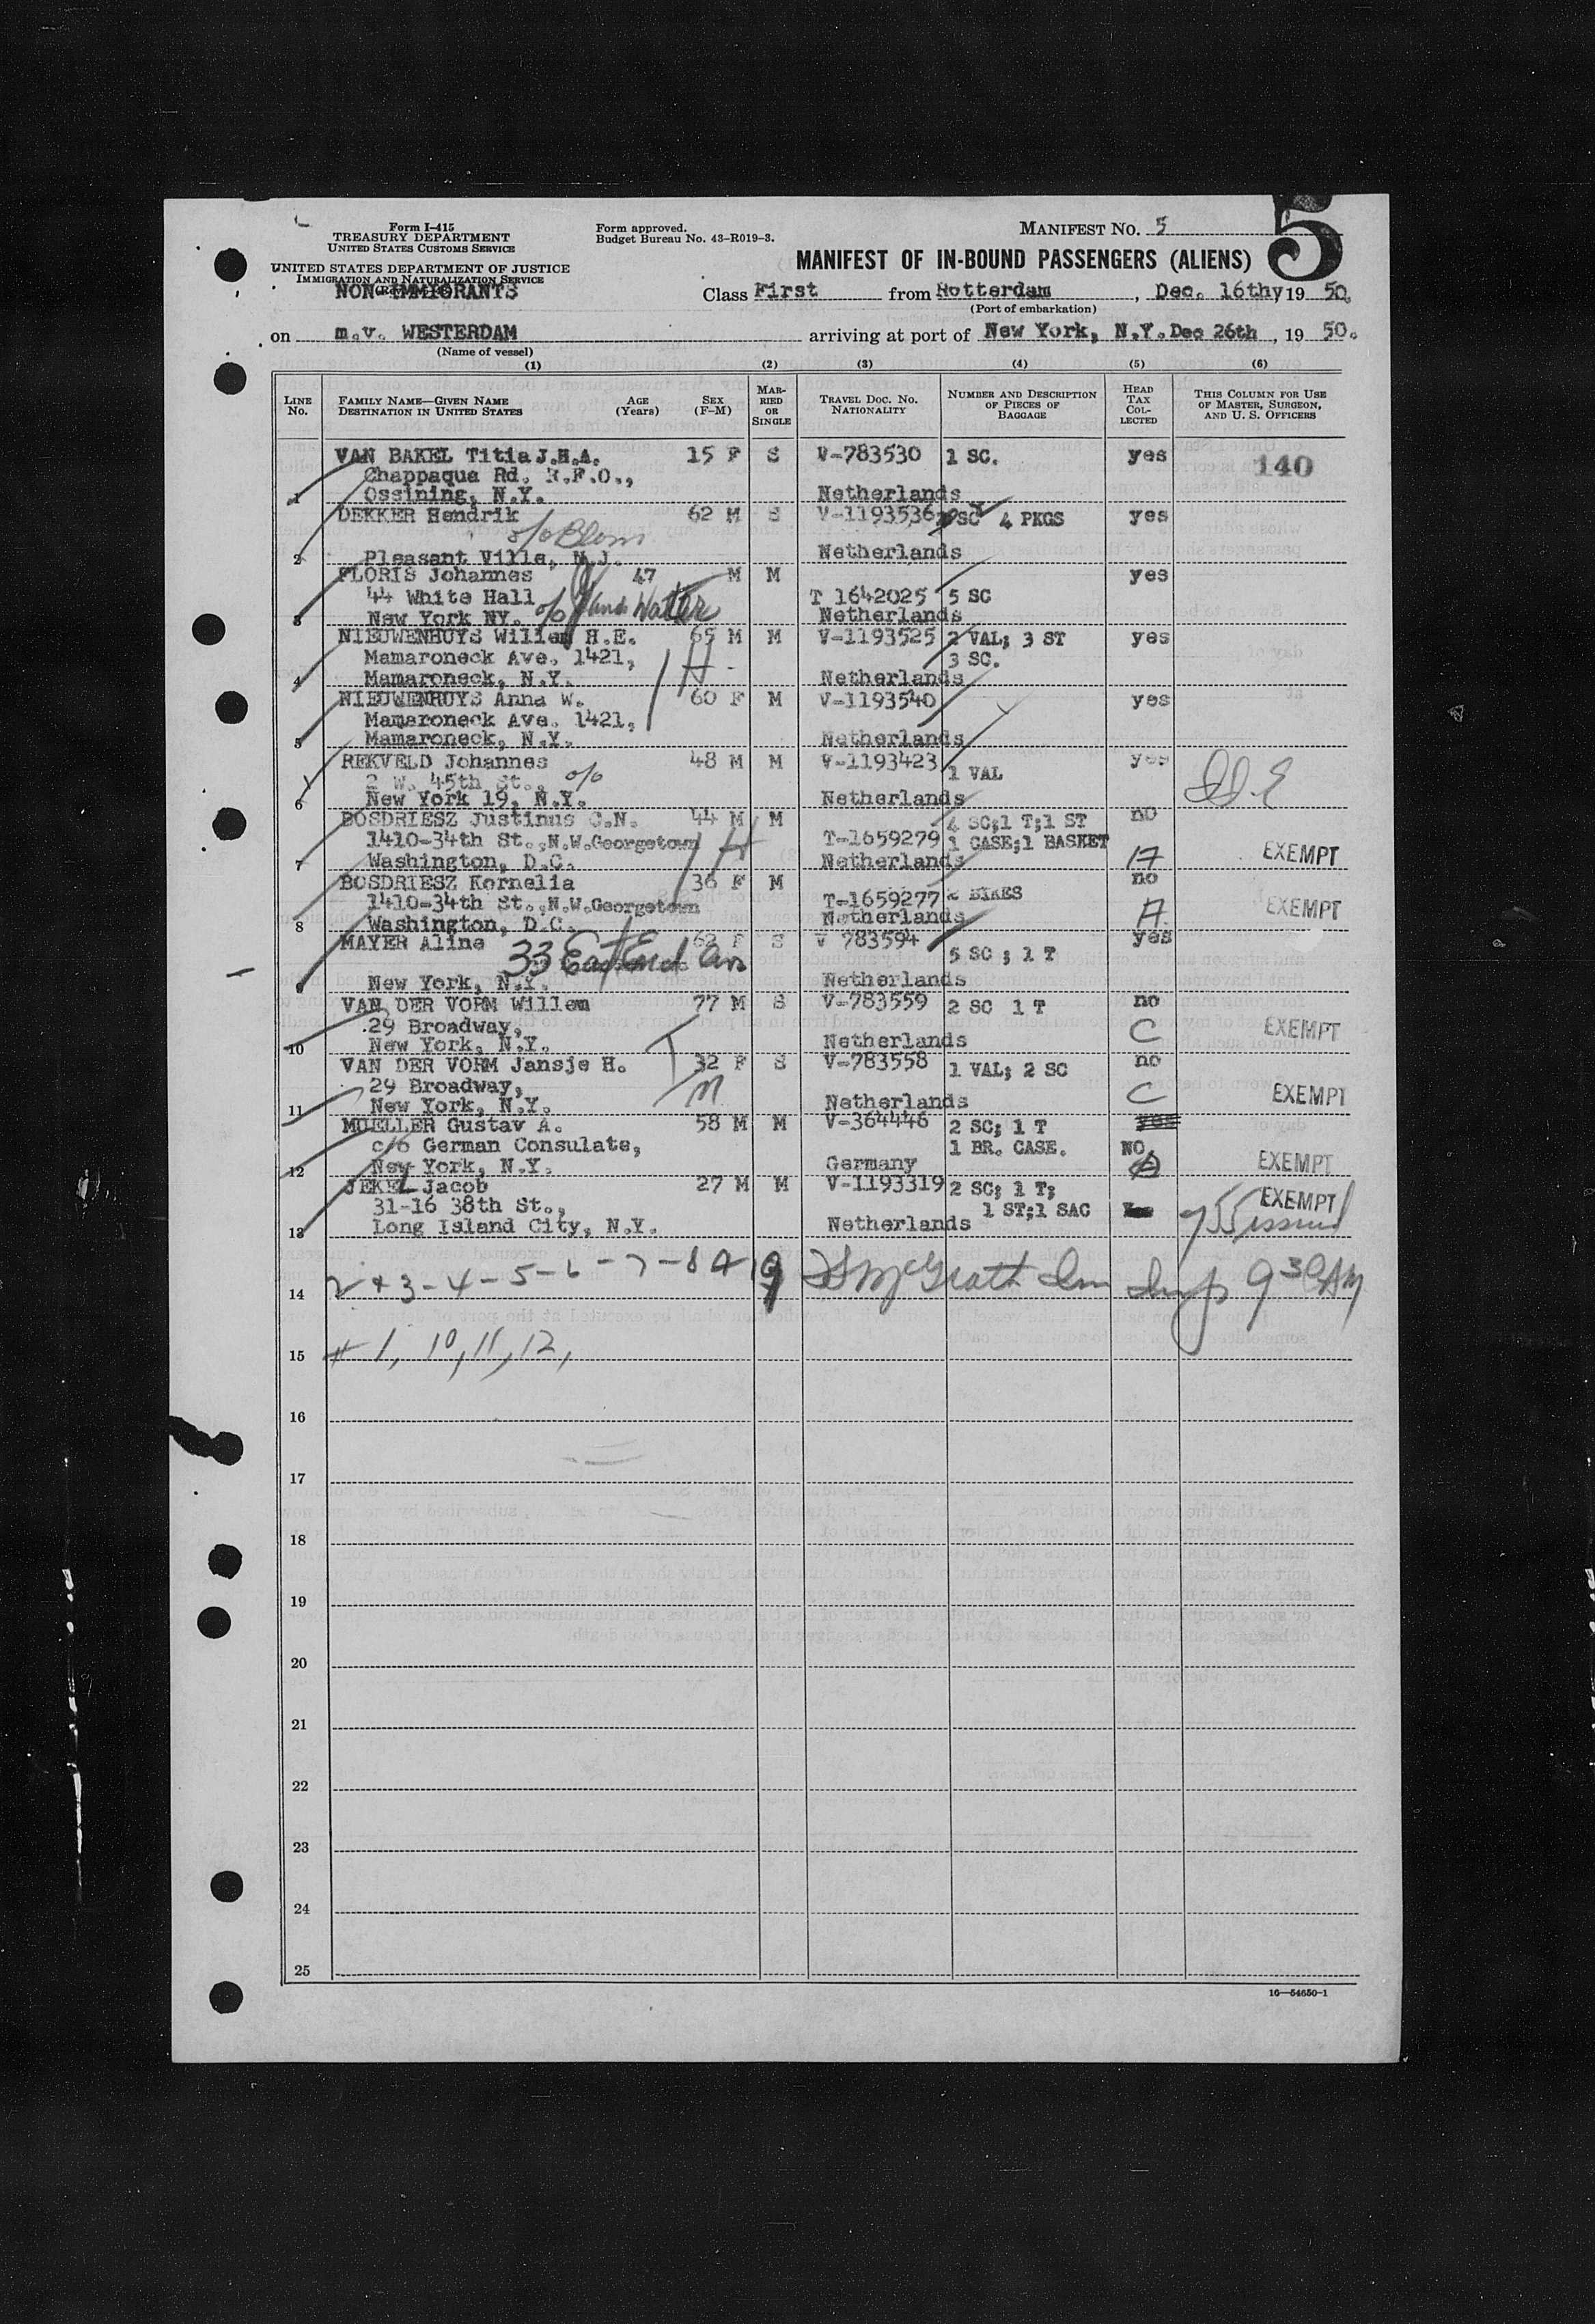 5
Form I-415
TREASURY DEPARTMENT
UNITED STATES CUSTOMS SERVICE
Form approved.
Budget Bureau No. 43-R019-3.
MANIFEST NO. 5
UNITED STATES DEPARTMENT OF JUSTICE
IMMIGRATION AND NATURALIZATION SERVICE
MANIFEST OF IN-BOUND PASSENGERS (ALIENS)
NON-IMMIGRANTS
Class First from Rotterdam, Dec. 16thy 19 50.
(Port of embarkation)
on m.v. WESTERDAM arriving at port of New York, N.Y. Dec 26th, 19 50.
(Name of vessel)
(1) (2) (3) (4) (5) (6)
LINE No. FAMILY NAME—GIVEN NAME DESTINATION IN UNITED STATES AGE (Years) SEX (F-M) MARRIED OR SINGLE TRAVEL DOC. NO. NATIONALITY NUMBER AND DESCRIPTION OF PIECES OF BAGGAGE HEAD TAX COLLECTED THIS COLUMN FOR USE OF MASTER, SURGEON, AND U. S. OFFICERS
VAN BAKEL Titia J.H.A. 15 F S V-783530 1 SC. yes 140
Chappaqua Rd. R.F.O.,
1 Ossining, N.Y. Netherlands
DEKKER Hendrik 62 M S V-1193536 SC 4 PKGS yes
c/o Blom
2 Pleasant Ville, N.J. Netherlands
FLORIS Johannes 47 M M yes
44 White Hall T 1642025 5 SC
3 New York NY. c/o Netherlands
NIEUWENHUYS Willem H.E. 65 M M V-1193525 2 VAL; 3 ST yes
Mamaroneck Ave. 1421, H 3 SC.
4 Mamaroneck, N.Y. Netherlands
NIEUWENHUYS Anna W. 60 F M V-1193540 yes
Mamaroneck Ave. 1421,
5 Mamaroneck, N.Y. Netherlands
REKVELD Johannes 48 M M V-1193423 1 VAL yes
2 W. 45th St., c/o
6 New York 19, N.Y. Netherlands
BOSDRIESZ Justinus C.N. 44 M M 4 SC;1 T;1 ST no
1410-34th St.,N.W.Georgetown H T-1659279 1 CASE;1 BASKET
7 Washington, D.C. Netherlands EXEMPT
BOSDRIESZ Kornelia 36 F M no
1410-34th St.,N.W.Georgetown T-1659277 2 BIKES
8 Washington, D.C. Netherlands A EXEMPT
MAYER Aline 62 F S V 783594 yes
33 East End Av 5 SC ; 1 T
9 New York, N.Y. Netherlands
VAN DER VORM Willem 77 M S V-783559 2 SC 1 T no
29 Broadway, C EXEMPT
10 New York, N.Y. Netherlands
VAN DER VORM Jansje H. 32 F S V-783558 1 VAL; 2 SC no
29 Broadway, C EXEMPT
11 New York, N.Y. Netherlands
MUELLER Gustav A. 58 M M V-364446 2 SC; 1 T yes
c/o German Consulate, 1 BR. CASE. NO
12 New York, N.Y. Germany EXEMPT
JEKEL Jacob 27 M M V-1193319 2 SC; 1 T; EXEMPT
31-16 38th St., 1 ST;1 SAC
13 Long Island City, N.Y. Netherlands
14 2 + 3 - 4 - 5 - 6 - 7 - 8 + 9 McGrath Imm Insp 9 30 AM
15 # 1, 10, 11, 12,
16
17
18
19
20
21
22
23
24
25
16—54650-1